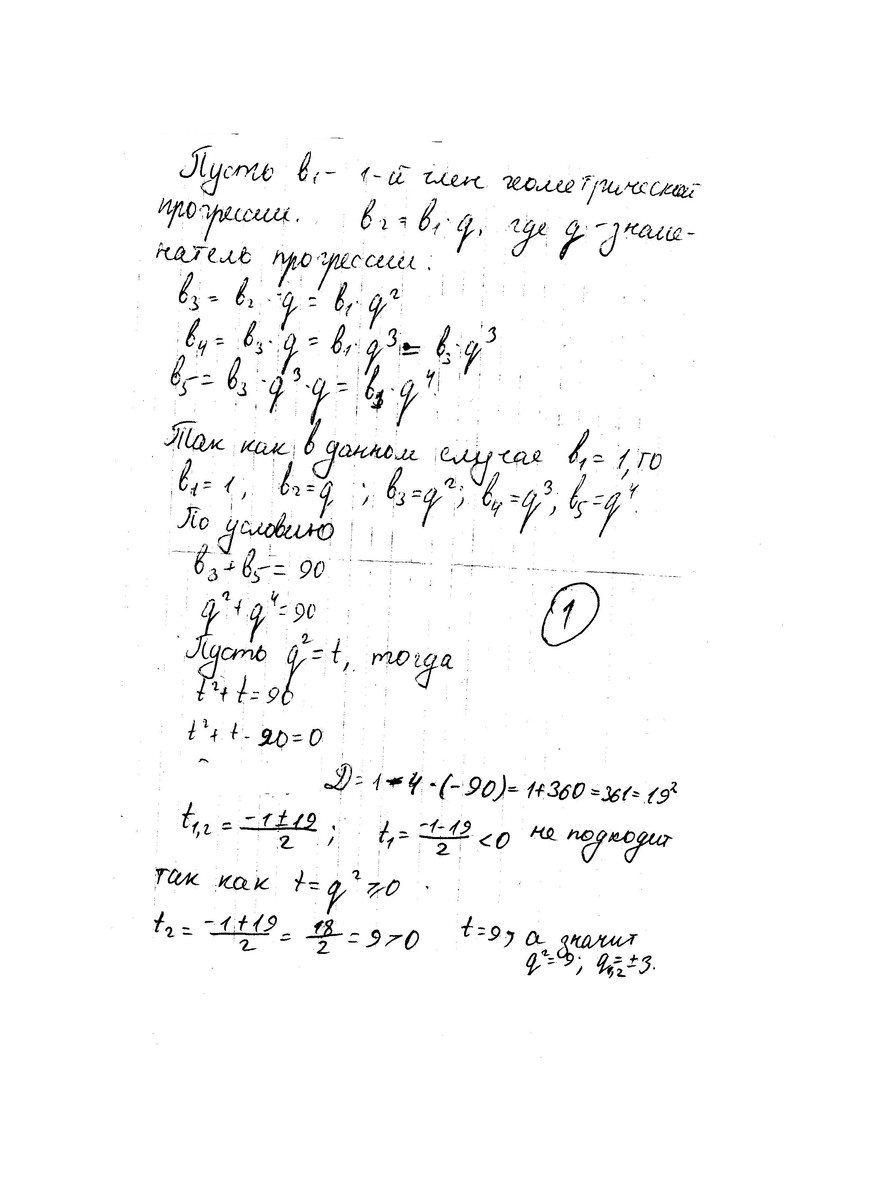 Пусть b₁ - 1-й член геометрической
прогрессии. b₂ = b₁·q, где q - знаме-
натель прогрессии.
b₃ = b₂·q = b₁·q²
b₄ = b₃·q = b₁·q³ = b₃·q³
b₅ = b₃·q³·q = b₁·q⁴
Так как в данном случае b₁ = 1, то
b₁ = 1, b₂ = q ; b₃ = q²; b₄ = q³; b₅ = q⁴.
По условию
b₃ + b₅ = 90
q² + q⁴ = 90
1
Пусть q² = t, тогда
t² + t = 90
t² + t - 90 = 0
D = 1 - 4·(-90) = 1+360 = 361 = 19²
t₁,₂ = (-1 ± 19)/2 ; t₁ = (-1-19)/2 < 0 не подходит
так как t = q² ⩾ 0.
t₂ = (-1+19)/2 = 18/2 = 9 > 0 t = 9, а значит
q² = 9; q₁,₂ = ±3.